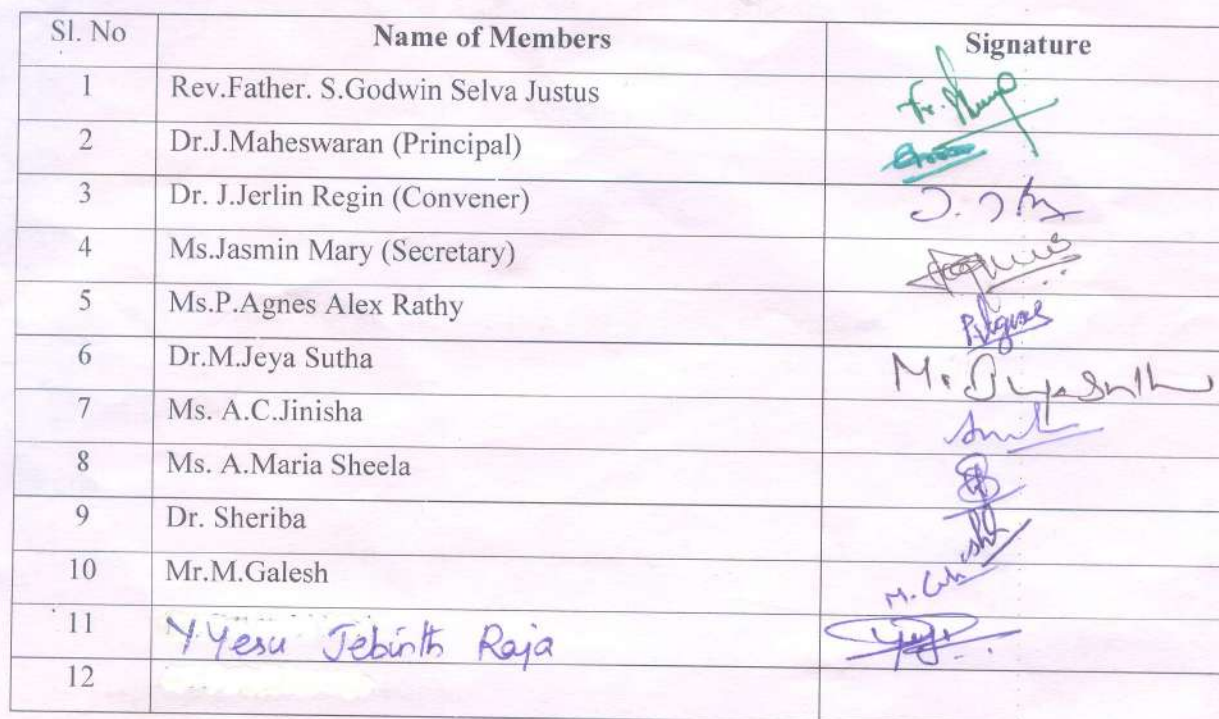 Sl. No Name of Members Signature
1 Rev.Father. S.Godwin Selva Justus
2 Dr.J.Maheswaran (Principal)
3 Dr. J.Jerlin Regin (Convener)
4 Ms.Jasmin Mary (Secretary)
5 Ms.P.Agnes Alex Rathy P.Agnes
6 Dr.M.Jeya Sutha M. JeyaSutha
7 Ms. A.C.Jinisha
8 Ms. A.Maria Sheela
9 Dr. Sheriba
10 Mr.M.Galesh
11 Y Yesu Jebinth Raja
12